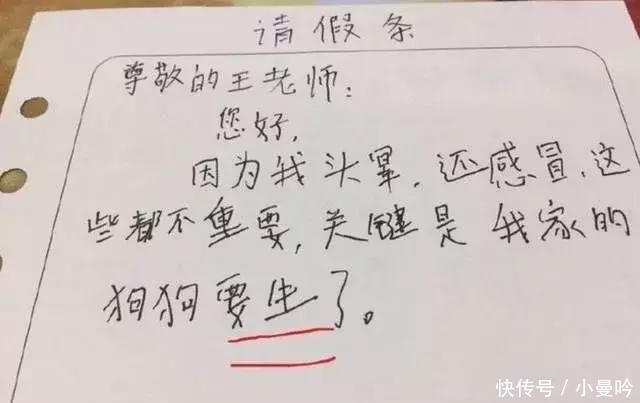 请假条
尊敬的王老师:
您好,
因为我头晕,还感冒,这
些都不重要,关键是我家的
狗狗要生了。
快传号/小曼吟